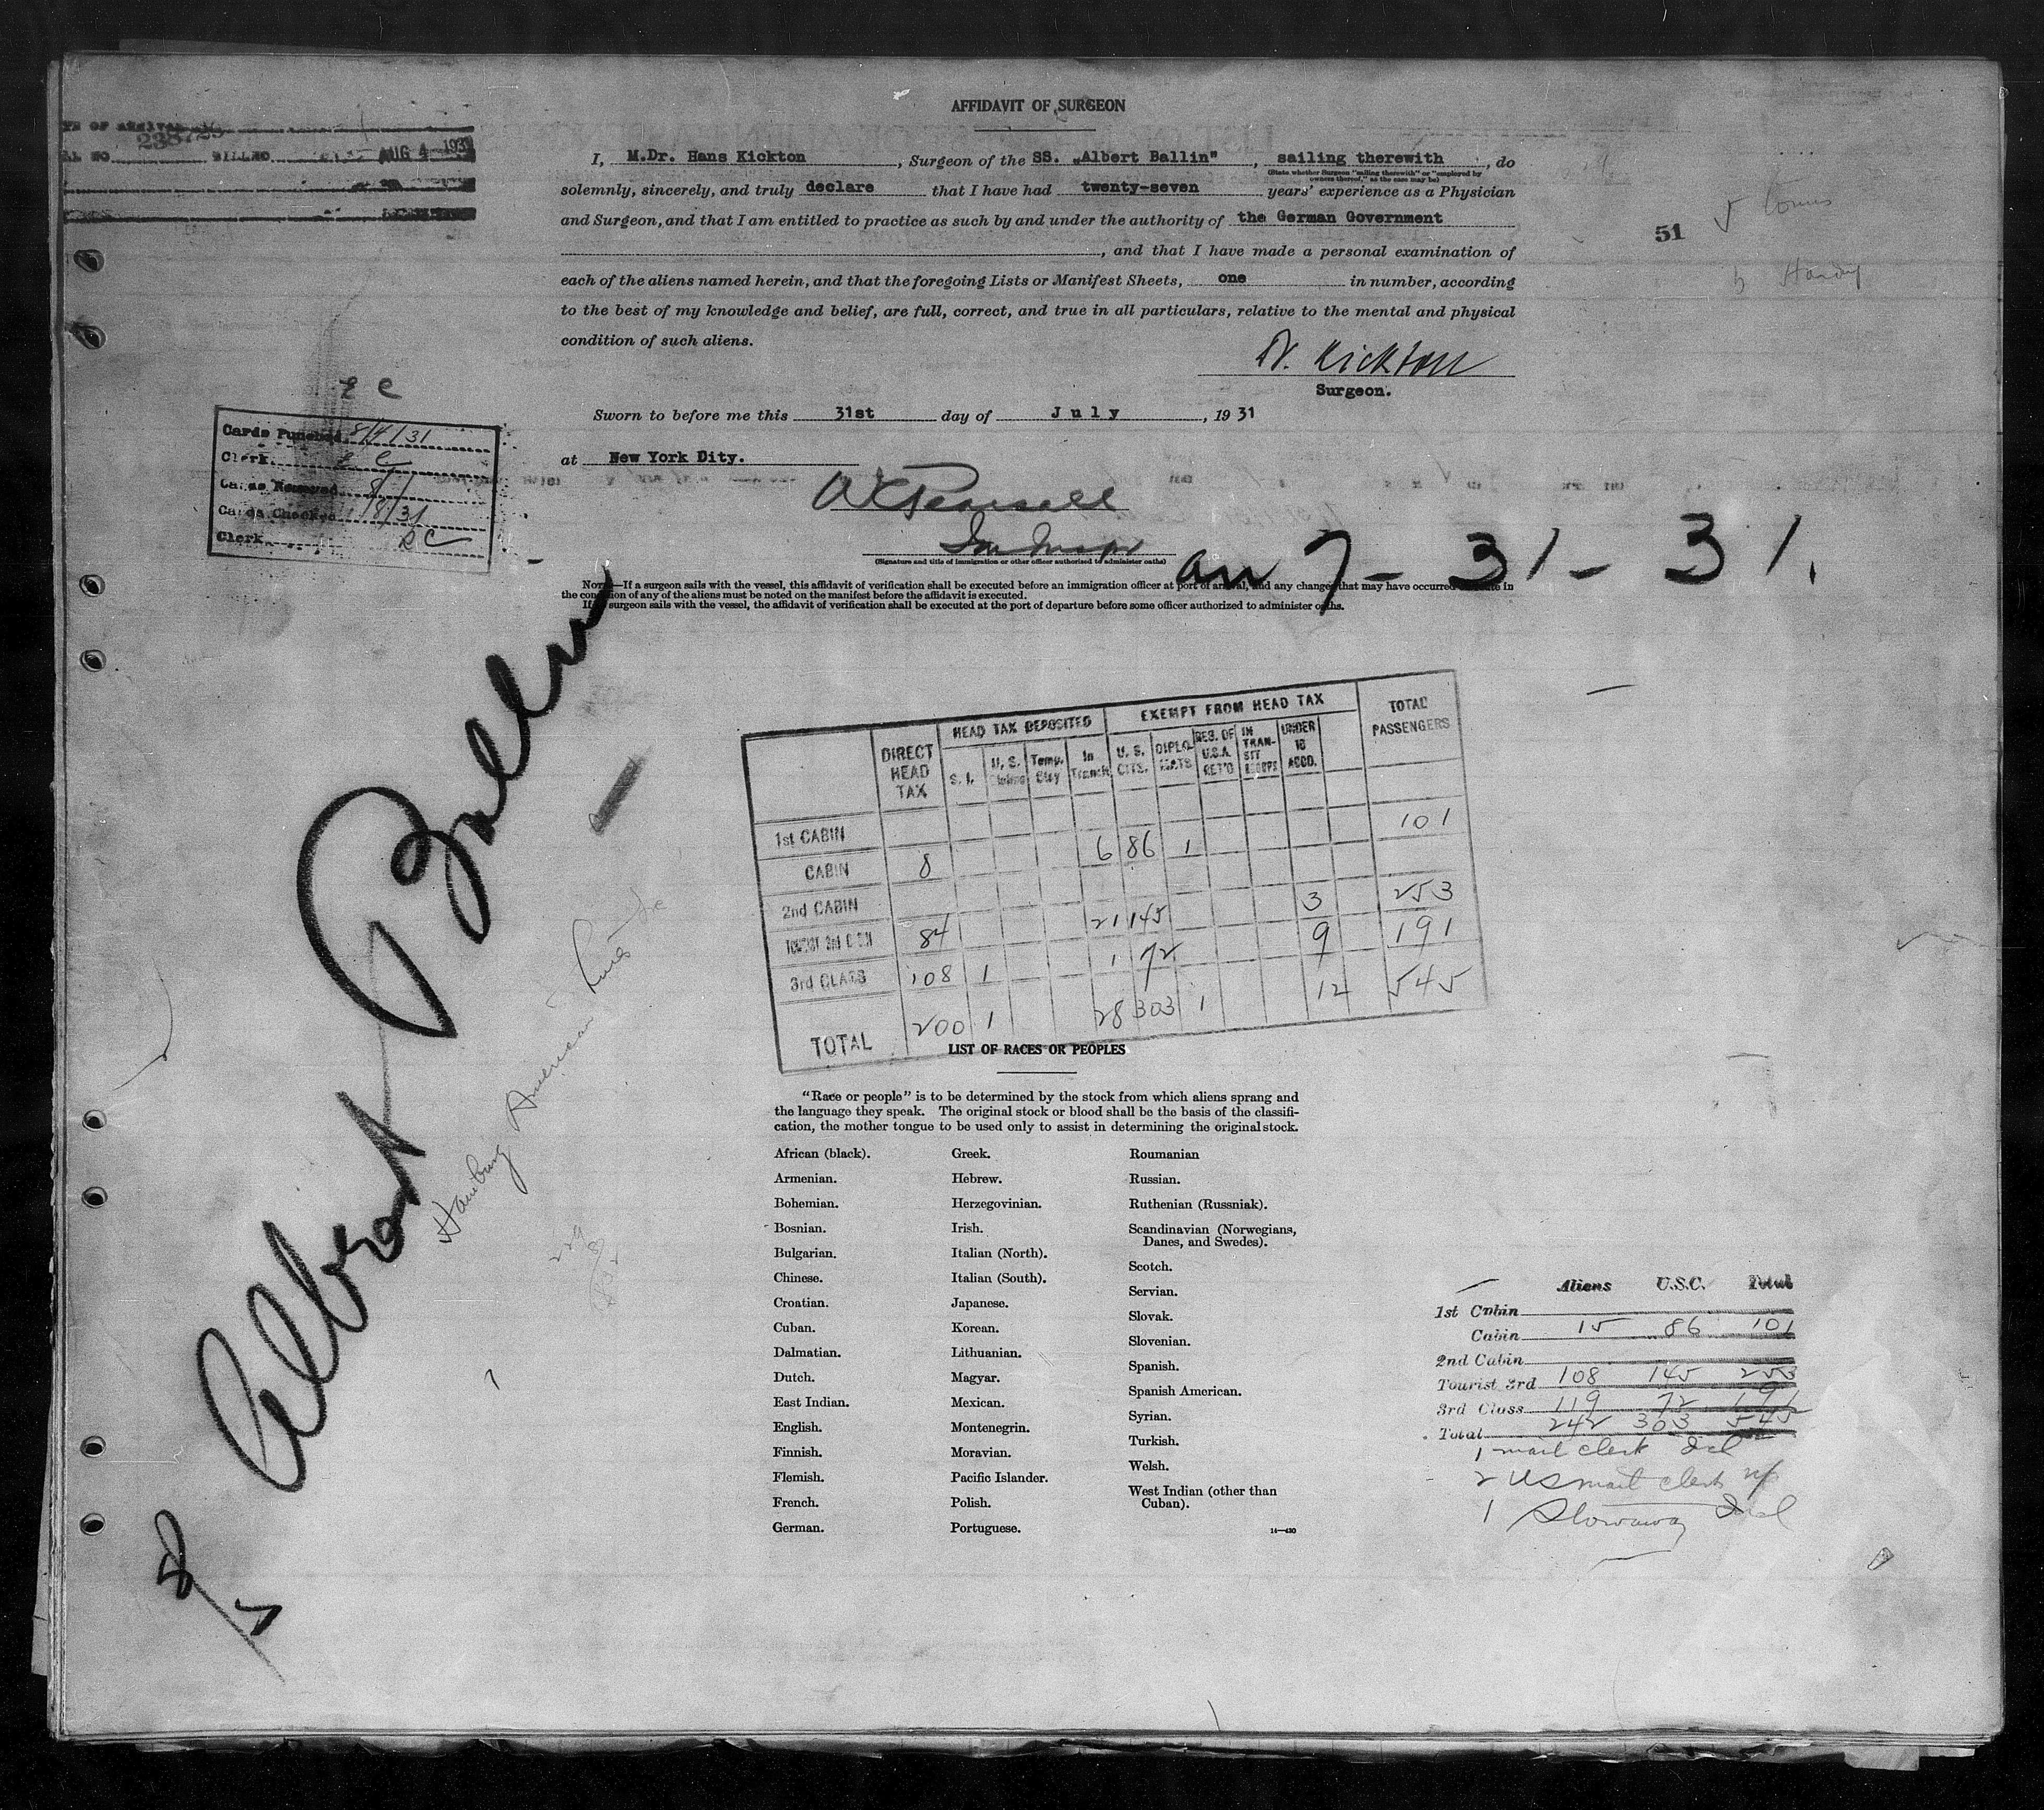 AFFIDAVIT OF SURGEON
238725
AUG 4 1931
I, M.Dr. Hans Kickton, Surgeon of the SS. „Albert Ballin", sailing therewith, do
(State whether Surgeon "sailing therewith" or "employed by
owners thereof," as the case may be)
solemnly, sincerely, and truly declare that I have had twenty-seven years' experience as a Physician
and Surgeon, and that I am entitled to practice as such by and under the authority of the German Government
, and that I have made a personal examination of
each of the aliens named herein, and that the foregoing Lists or Manifest Sheets, one in number, according
to the best of my knowledge and belief, are full, correct, and true in all particulars, relative to the mental and physical
condition of such aliens.
51
Dr. Kickton
Surgeon.
Sworn to before me this 31st day of July, 1931
at New York Dity.
(Signature and title of immigration or other officer authorized to administer oaths)
Cards Punched 8/4/31
Clerk
Cards Removed
Cards Checked
Clerk
7-31-31.
NOTE—If a surgeon sails with the vessel, this affidavit of verification shall be executed before an immigration officer at port of arrival, and any changes that may have occurred en route in
the condition of any of the aliens must be noted on the manifest before the affidavit is executed.
surgeon sails with the vessel, the affidavit of verification shall be executed at the port of departure before some officer authorized to administer oaths.
Albert Ballin
Hamburg American Line
8/5
DIRECT HEAD TAX
HEAD TAX DEPOSITED
EXEMPT FROM HEAD TAX
TOTAL PASSENGERS
S. I.
U. S.
Temp. Stay
In Transit
U. S. CITS.
DIPLOMATS
RES. OF U.S.A. RET'D
IN TRANSIT
UNDER 16 ACCD.
1st CABIN
CABIN 8 6 86 1 101
2nd CABIN
TOURIST 3rd CABIN 84 21 145 3 253
3rd CLASS 108 1 1 72 9 191
TOTAL 200 1 28 303 1 12 545
LIST OF RACES OR PEOPLES
"Race or people" is to be determined by the stock from which aliens sprang and
the language they speak. The original stock or blood shall be the basis of the classifi-
cation, the mother tongue to be used only to assist in determining the original stock.
African (black).
Armenian.
Bohemian.
Bosnian.
Bulgarian.
Chinese.
Croatian.
Cuban.
Dalmatian.
Dutch.
East Indian.
English.
Finnish.
Flemish.
French.
German.
Greek.
Hebrew.
Herzegovinian.
Irish.
Italian (North).
Italian (South).
Japanese.
Korean.
Lithuanian.
Magyar.
Mexican.
Montenegrin.
Moravian.
Pacific Islander.
Polish.
Portuguese.
Roumanian
Russian.
Ruthenian (Russniak).
Scandinavian (Norwegians,
Danes, and Swedes).
Scotch.
Servian.
Slovak.
Slovenian.
Spanish.
Spanish American.
Syrian.
Turkish.
Welsh.
West Indian (other than
Cuban).
14—430
Aliens U.S.C. Total
1st Cabin
Cabin 15 86 101
2nd Cabin
Tourist 3rd 108 145 253
3rd Class 119 72 191
Total 242 303 545
1 mail clerk
2 US mail clerk
1 Stowaway